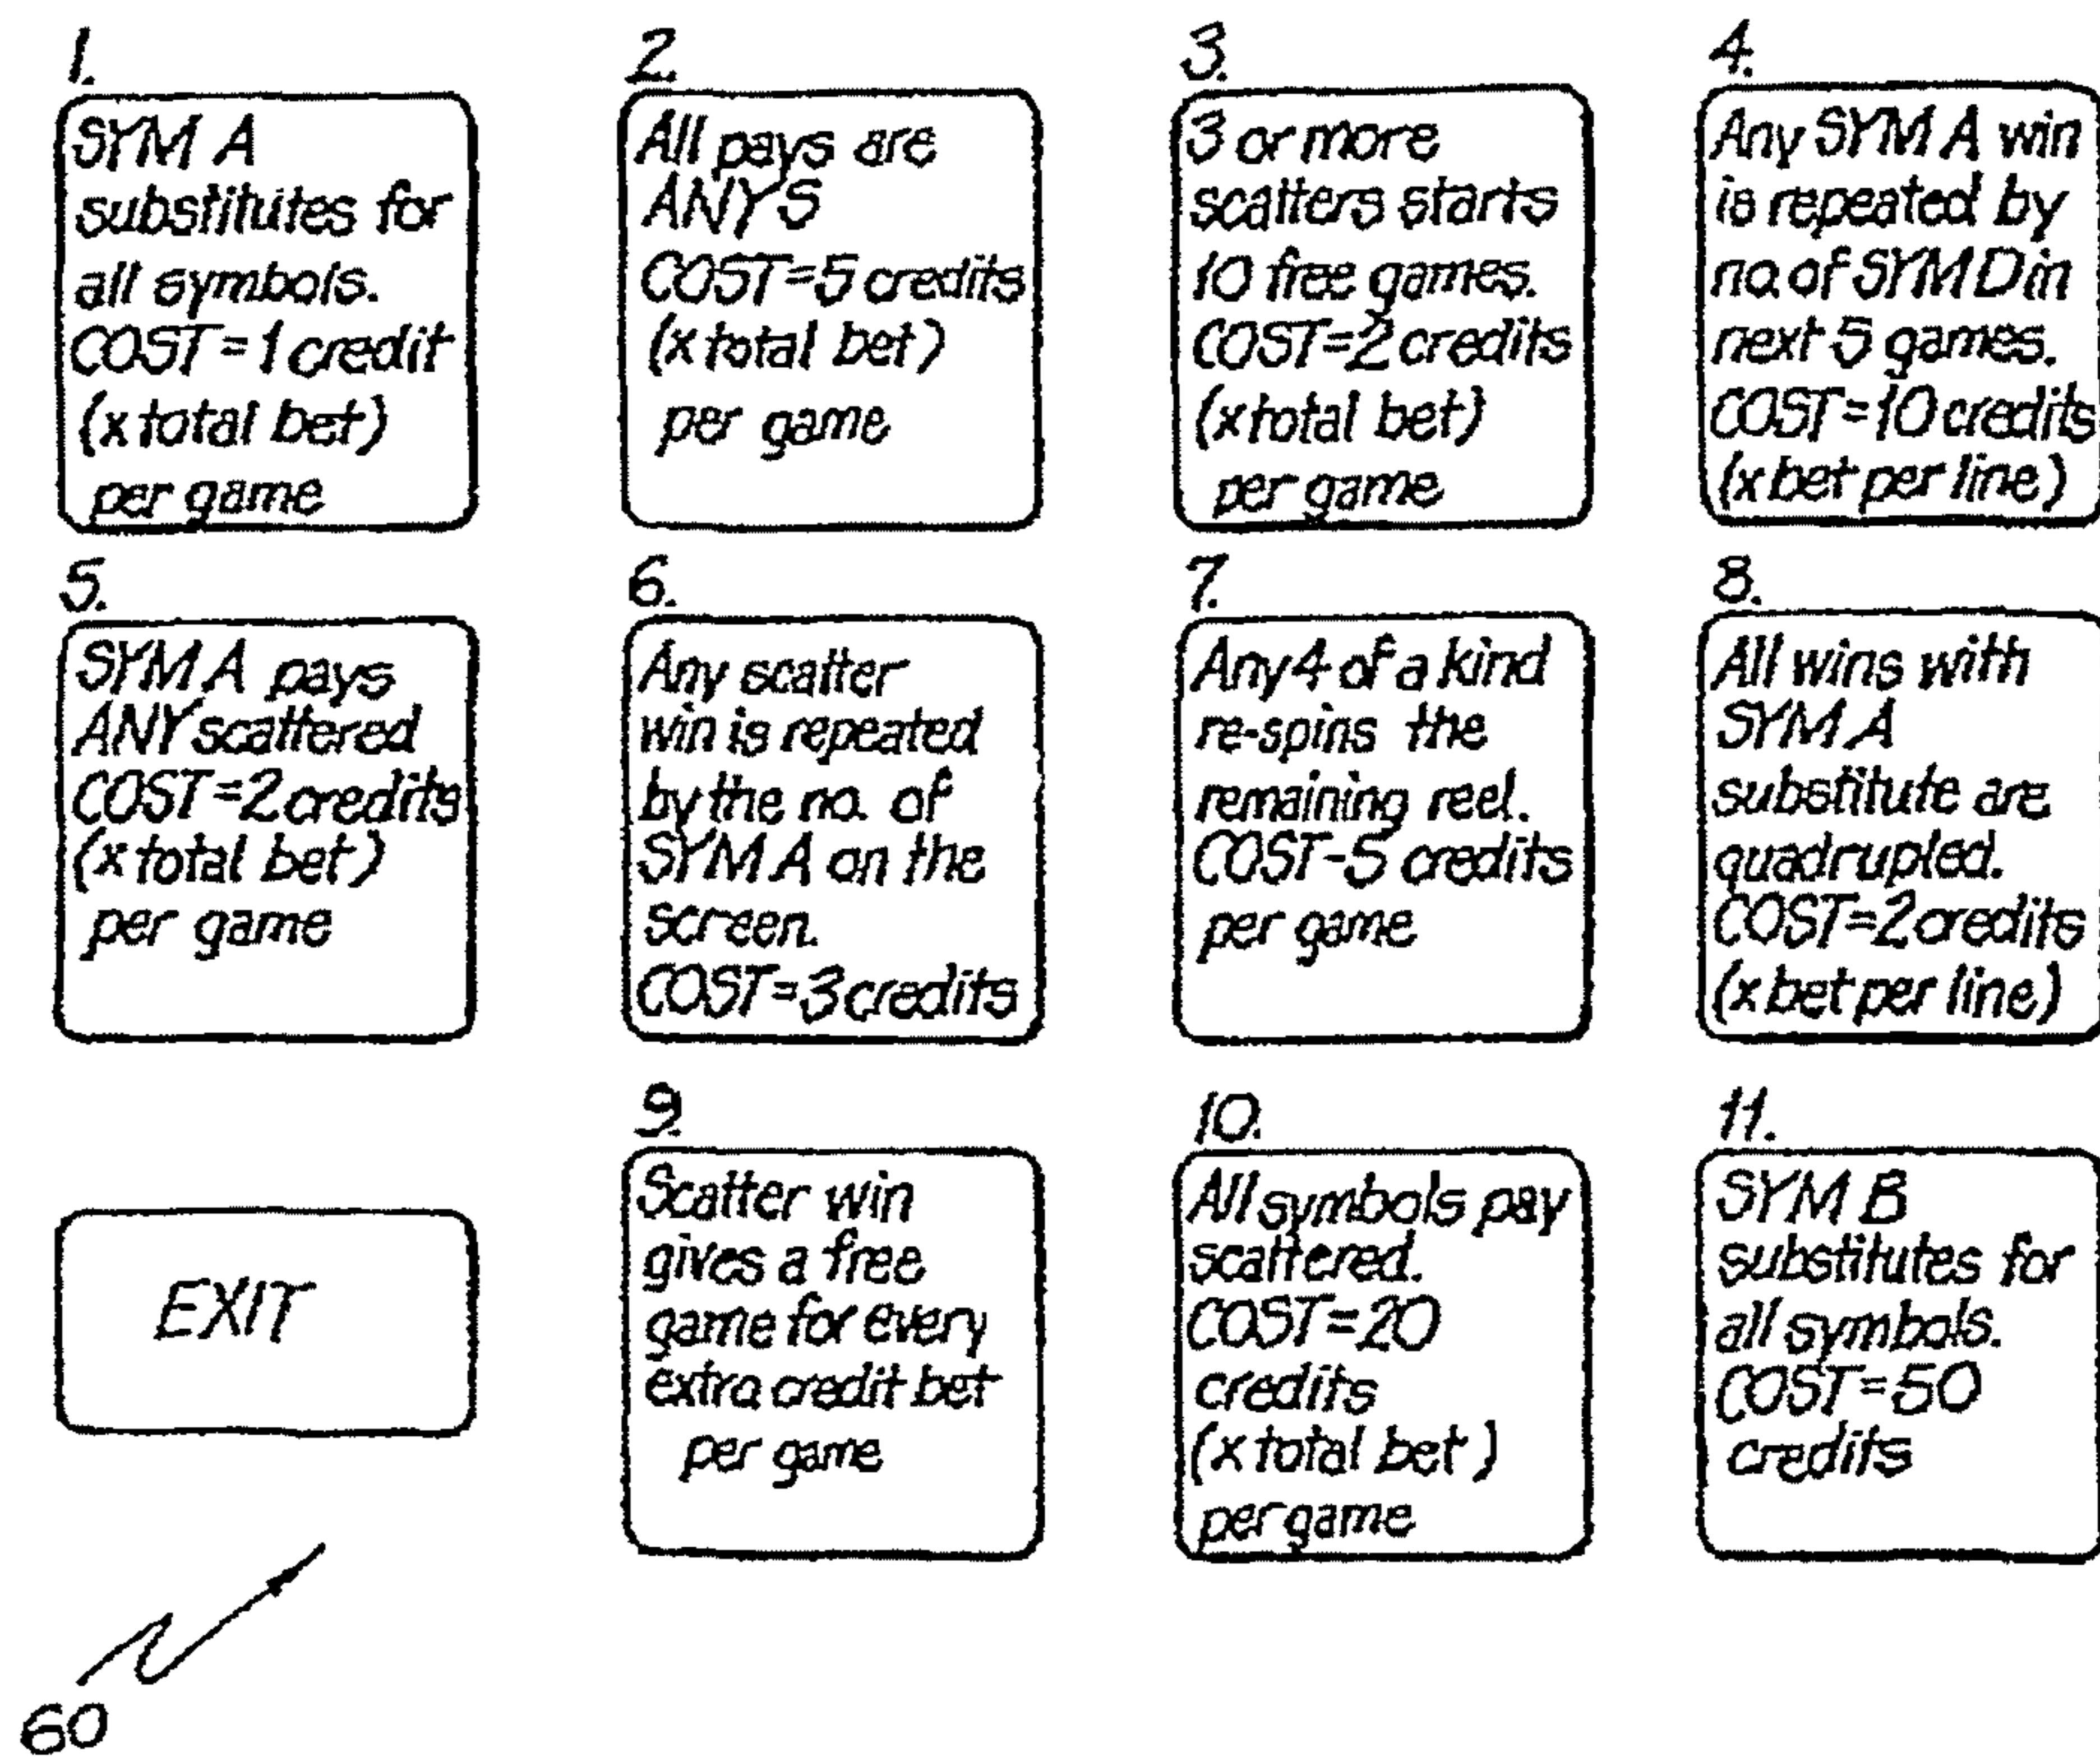 1.
SYM A
substitutes for
all symbols.
COST=1 credit
(x total bet)
per game
2.
All pays are
ANYS
COST=5 credits
(x total bet)
per game
3.
3 or more
scatters starts
10 free games.
COST=2 credits
(x total bet)
per game
4.
Any SYM A win
is repeated by
no. of SYM D in
next 5 games.
COST=10 credits
(x bet per line)
5.
SYM A pays
ANY scattered
COST=2 credits
(x total bet)
per game
6.
Any scatter
win is repeated
by the no. of
SYM A on the
screen.
COST=3 credits
7.
Any 4 of a kind
re-spins the
remaining reel.
COST-5 credits
per game
8.
All wins with
SYM A
substitute are
quadrupled.
COST=2 credits
(x bet per line)
EXIT
9.
Scatter win
gives a free
game for every
extra credit bet
per game
10.
All symbols pay
scattered.
COST=20
credits
(x total bet)
per game
11.
SYM B
substitutes for
all symbols.
COST=50
credits
60